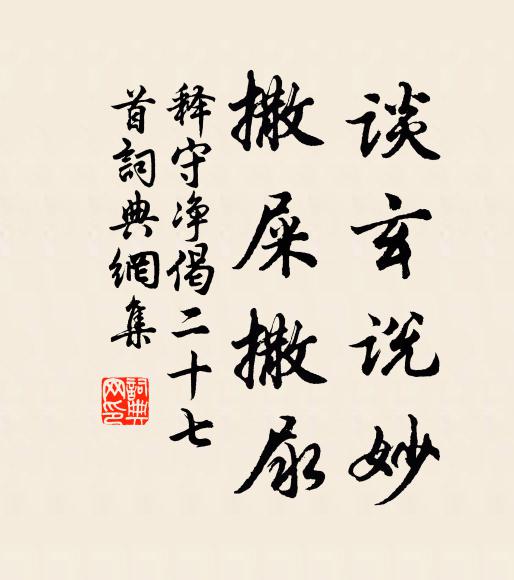 谈玄说妙
撒屎撒尿
释守净偈二十七
首詞典網集
詞典
网印